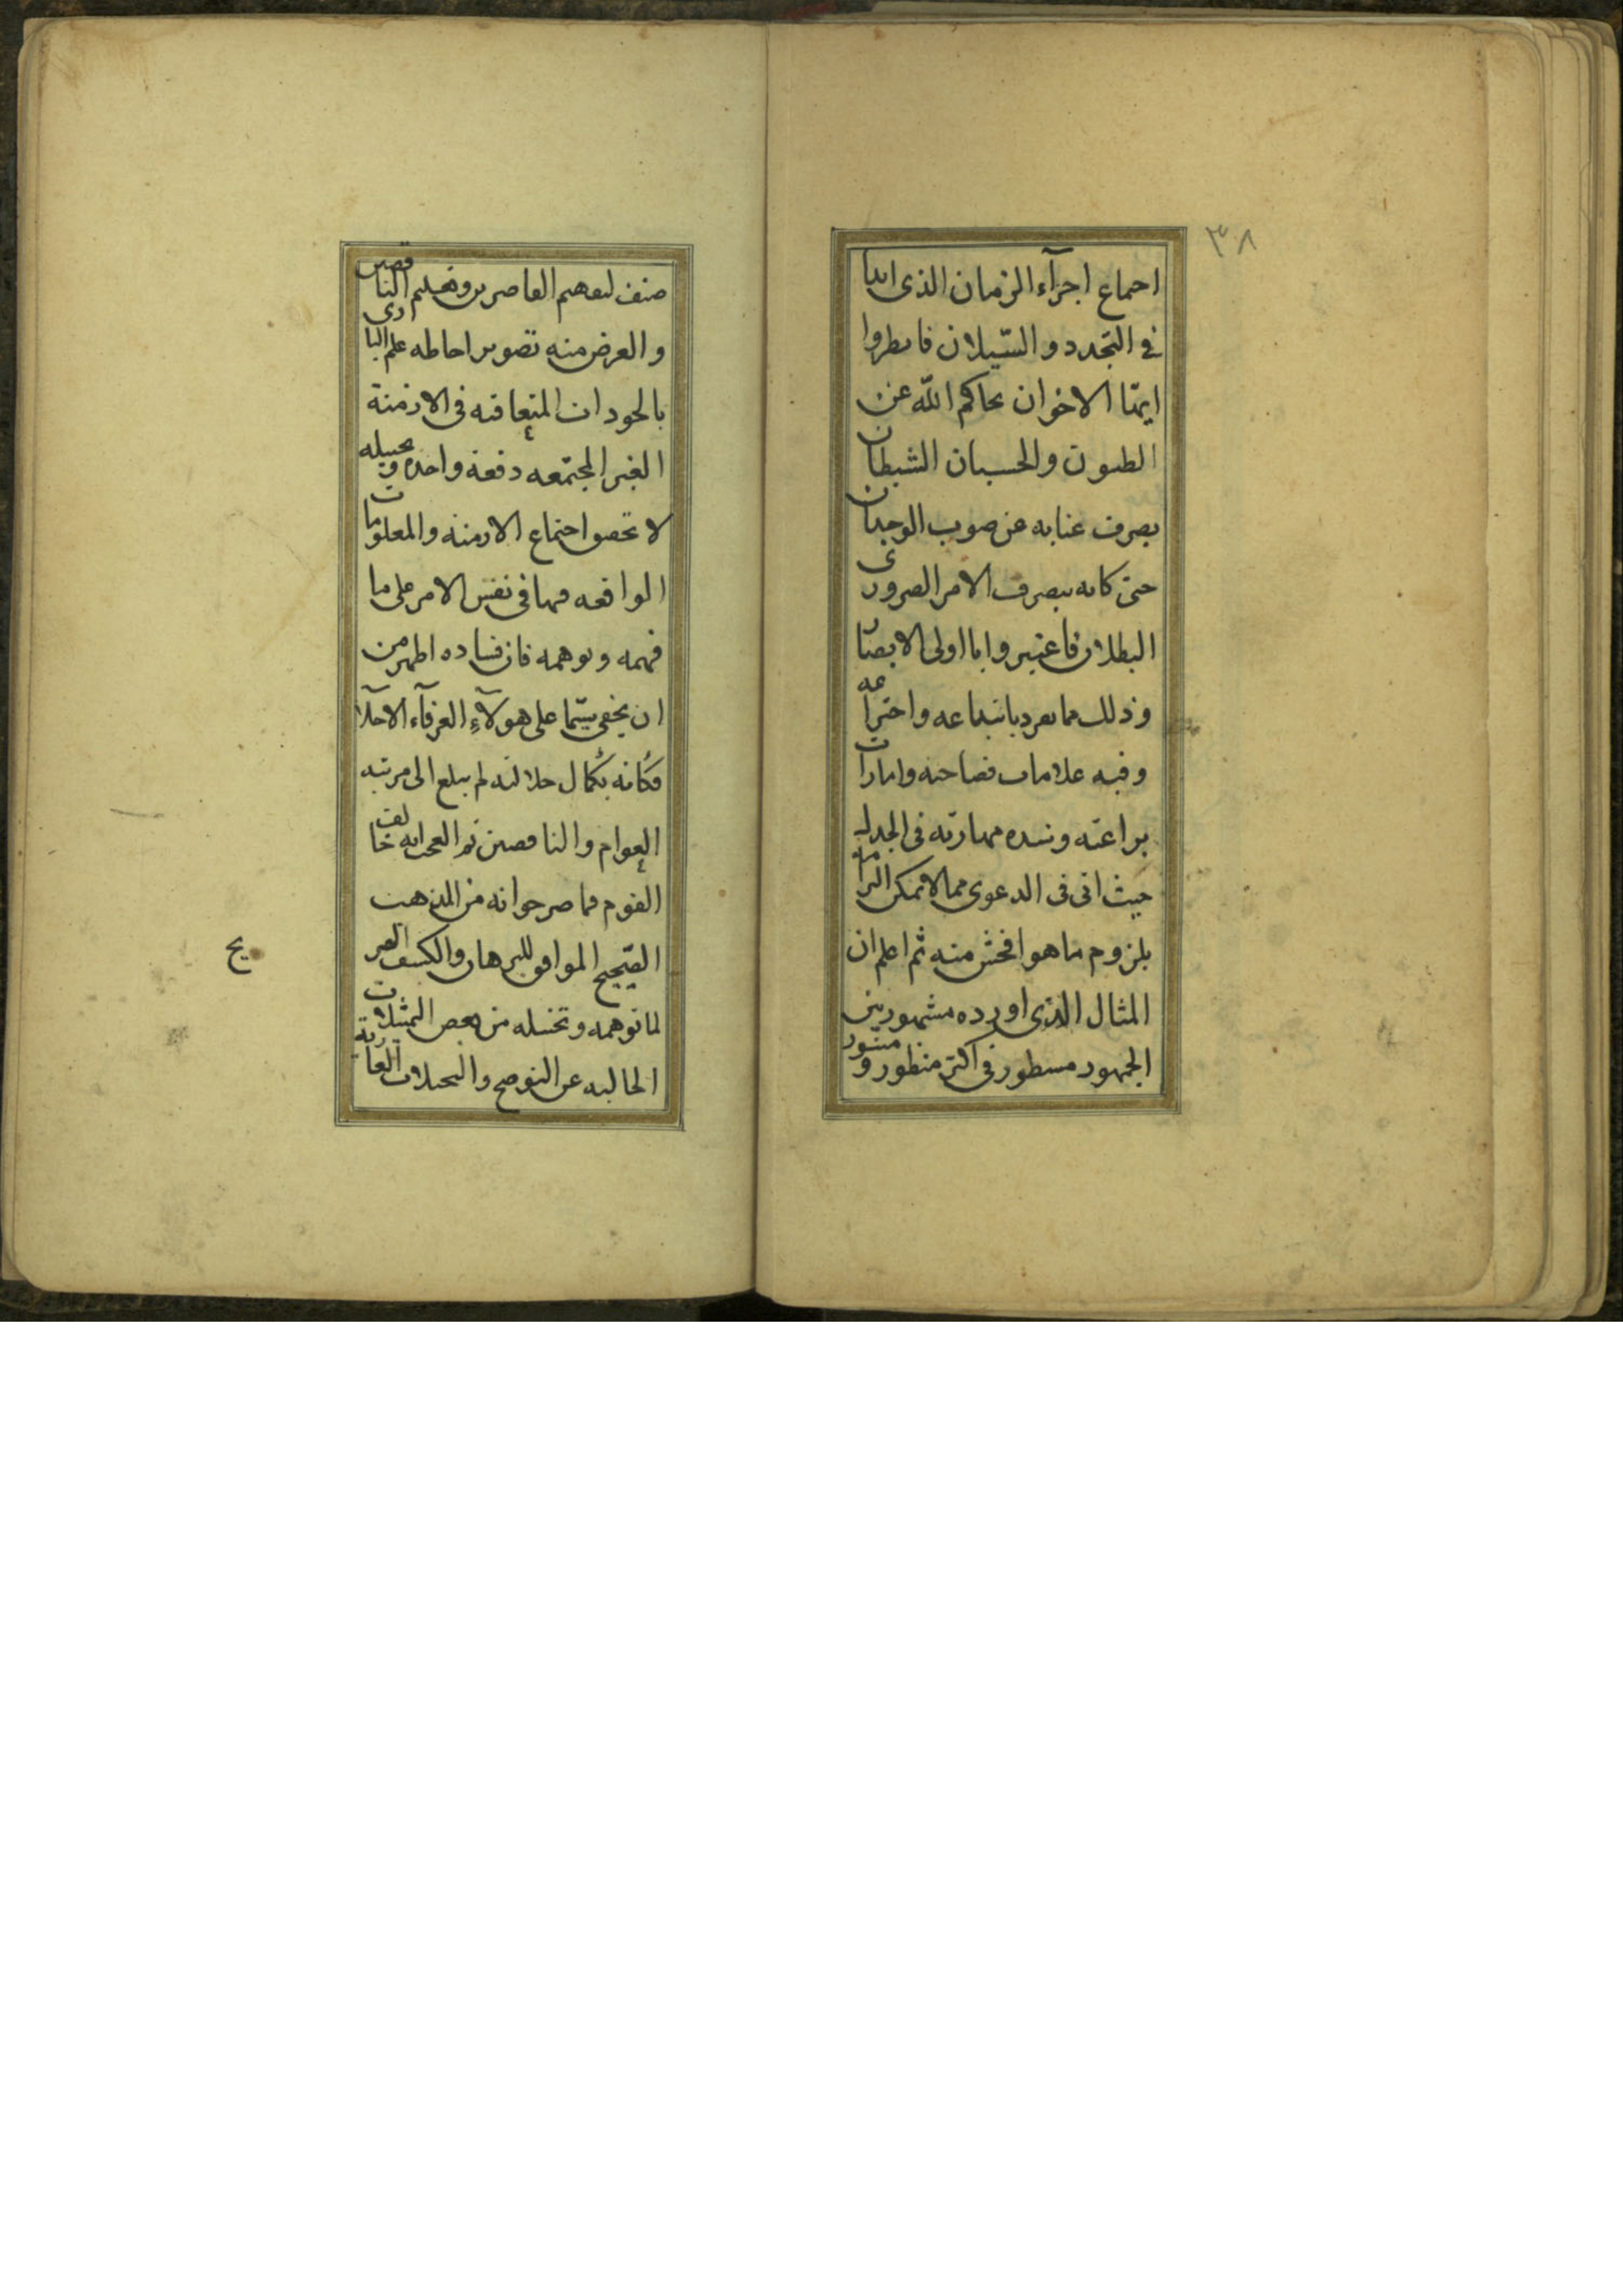 ٣٨
احماع اجزآء الزمان الذى ابدا
فى التجدد و السّيلان فانظروا
ايّها الاخوان نجاكم اللّه عن
الظنون والحسبان الشيطان
يصرف عنانه عن صوب الوجدان
حتى كانه يصرف الامر الضرورى
البطلان فاعتبروا يا اولى الابصار
وذلك مما تفرد بابتداعه واختراعه
وفيه علامات فصاحته وامارات
براعته وشده مهارته فى الجدل
حيث اتى فى الدعوى مما لا يمكن الزامه
بلزوم ما هو افحش منه ثم اعلم ان
المثال الذى اورده مشهور بين
الجمهور مسطور فى اكثر منظور و منثور
صنف لتفهيم القاصرين وتعليم الناقصين
والغرض منه تصوير احاطه علم البارى
بالحوادث المتعاقبه فى الازمنة
الغير المجتمعه دفعة واحده وبحيله
لا تحقق اجتماع الازمنه والمعلومات
الواقعه فيها فى نفس الامر على ما
فهمه وتوهمه فان فساده اظهر من
ان يخفى سيّما على هولآء العرفآء الاجلآ
فكانه بكمال جلالته لم يبلغ الى مرتبه
العوام والناقصين ثم العجب انه خالف
القوم فما صرحوا به من المذهب
الصّحيح الموافق للبرهان والكشف الصر
يح
لما توهمه وتخيله من بعض التمثيلات
الخاليه عن التوضيح والتخيلات العارية